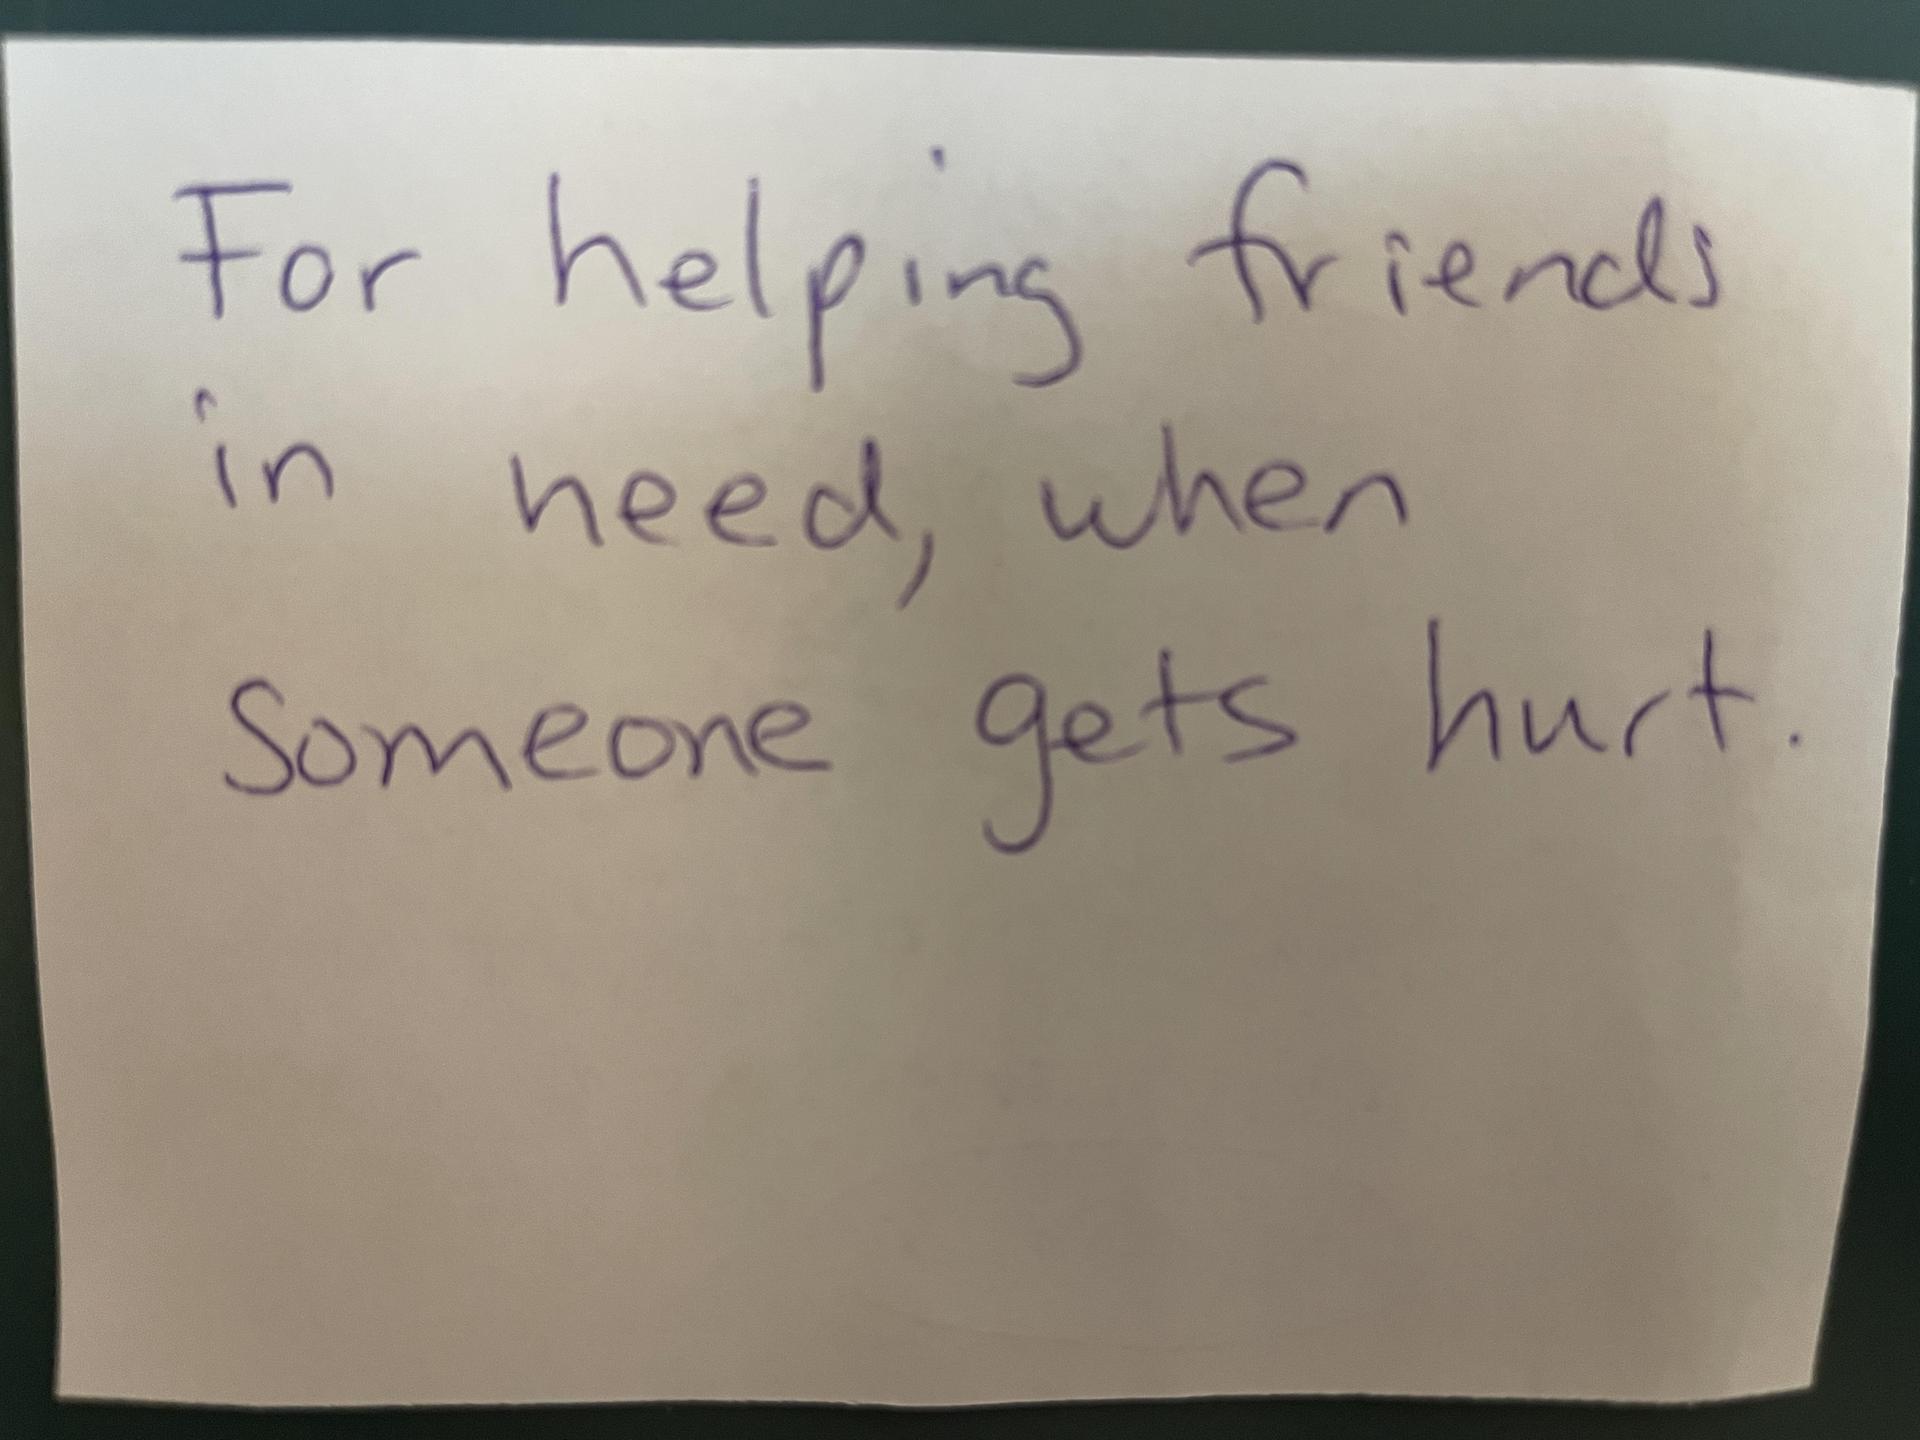 For helping friends
in need, when
someone gets hurt.